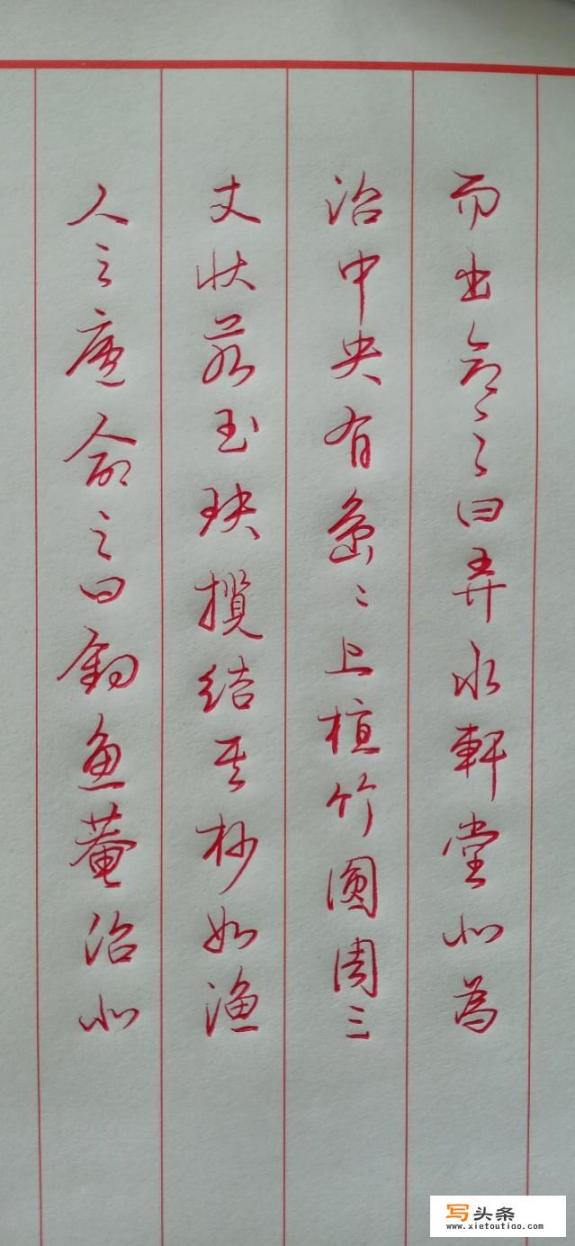 而出命之曰弄水軒堂北為
沼中央有島〻上植竹圓周三
丈状若玉玦攬結其杪如漁
人之廬命之曰釣魚菴沼北
写头条
www.xietoutiao.com